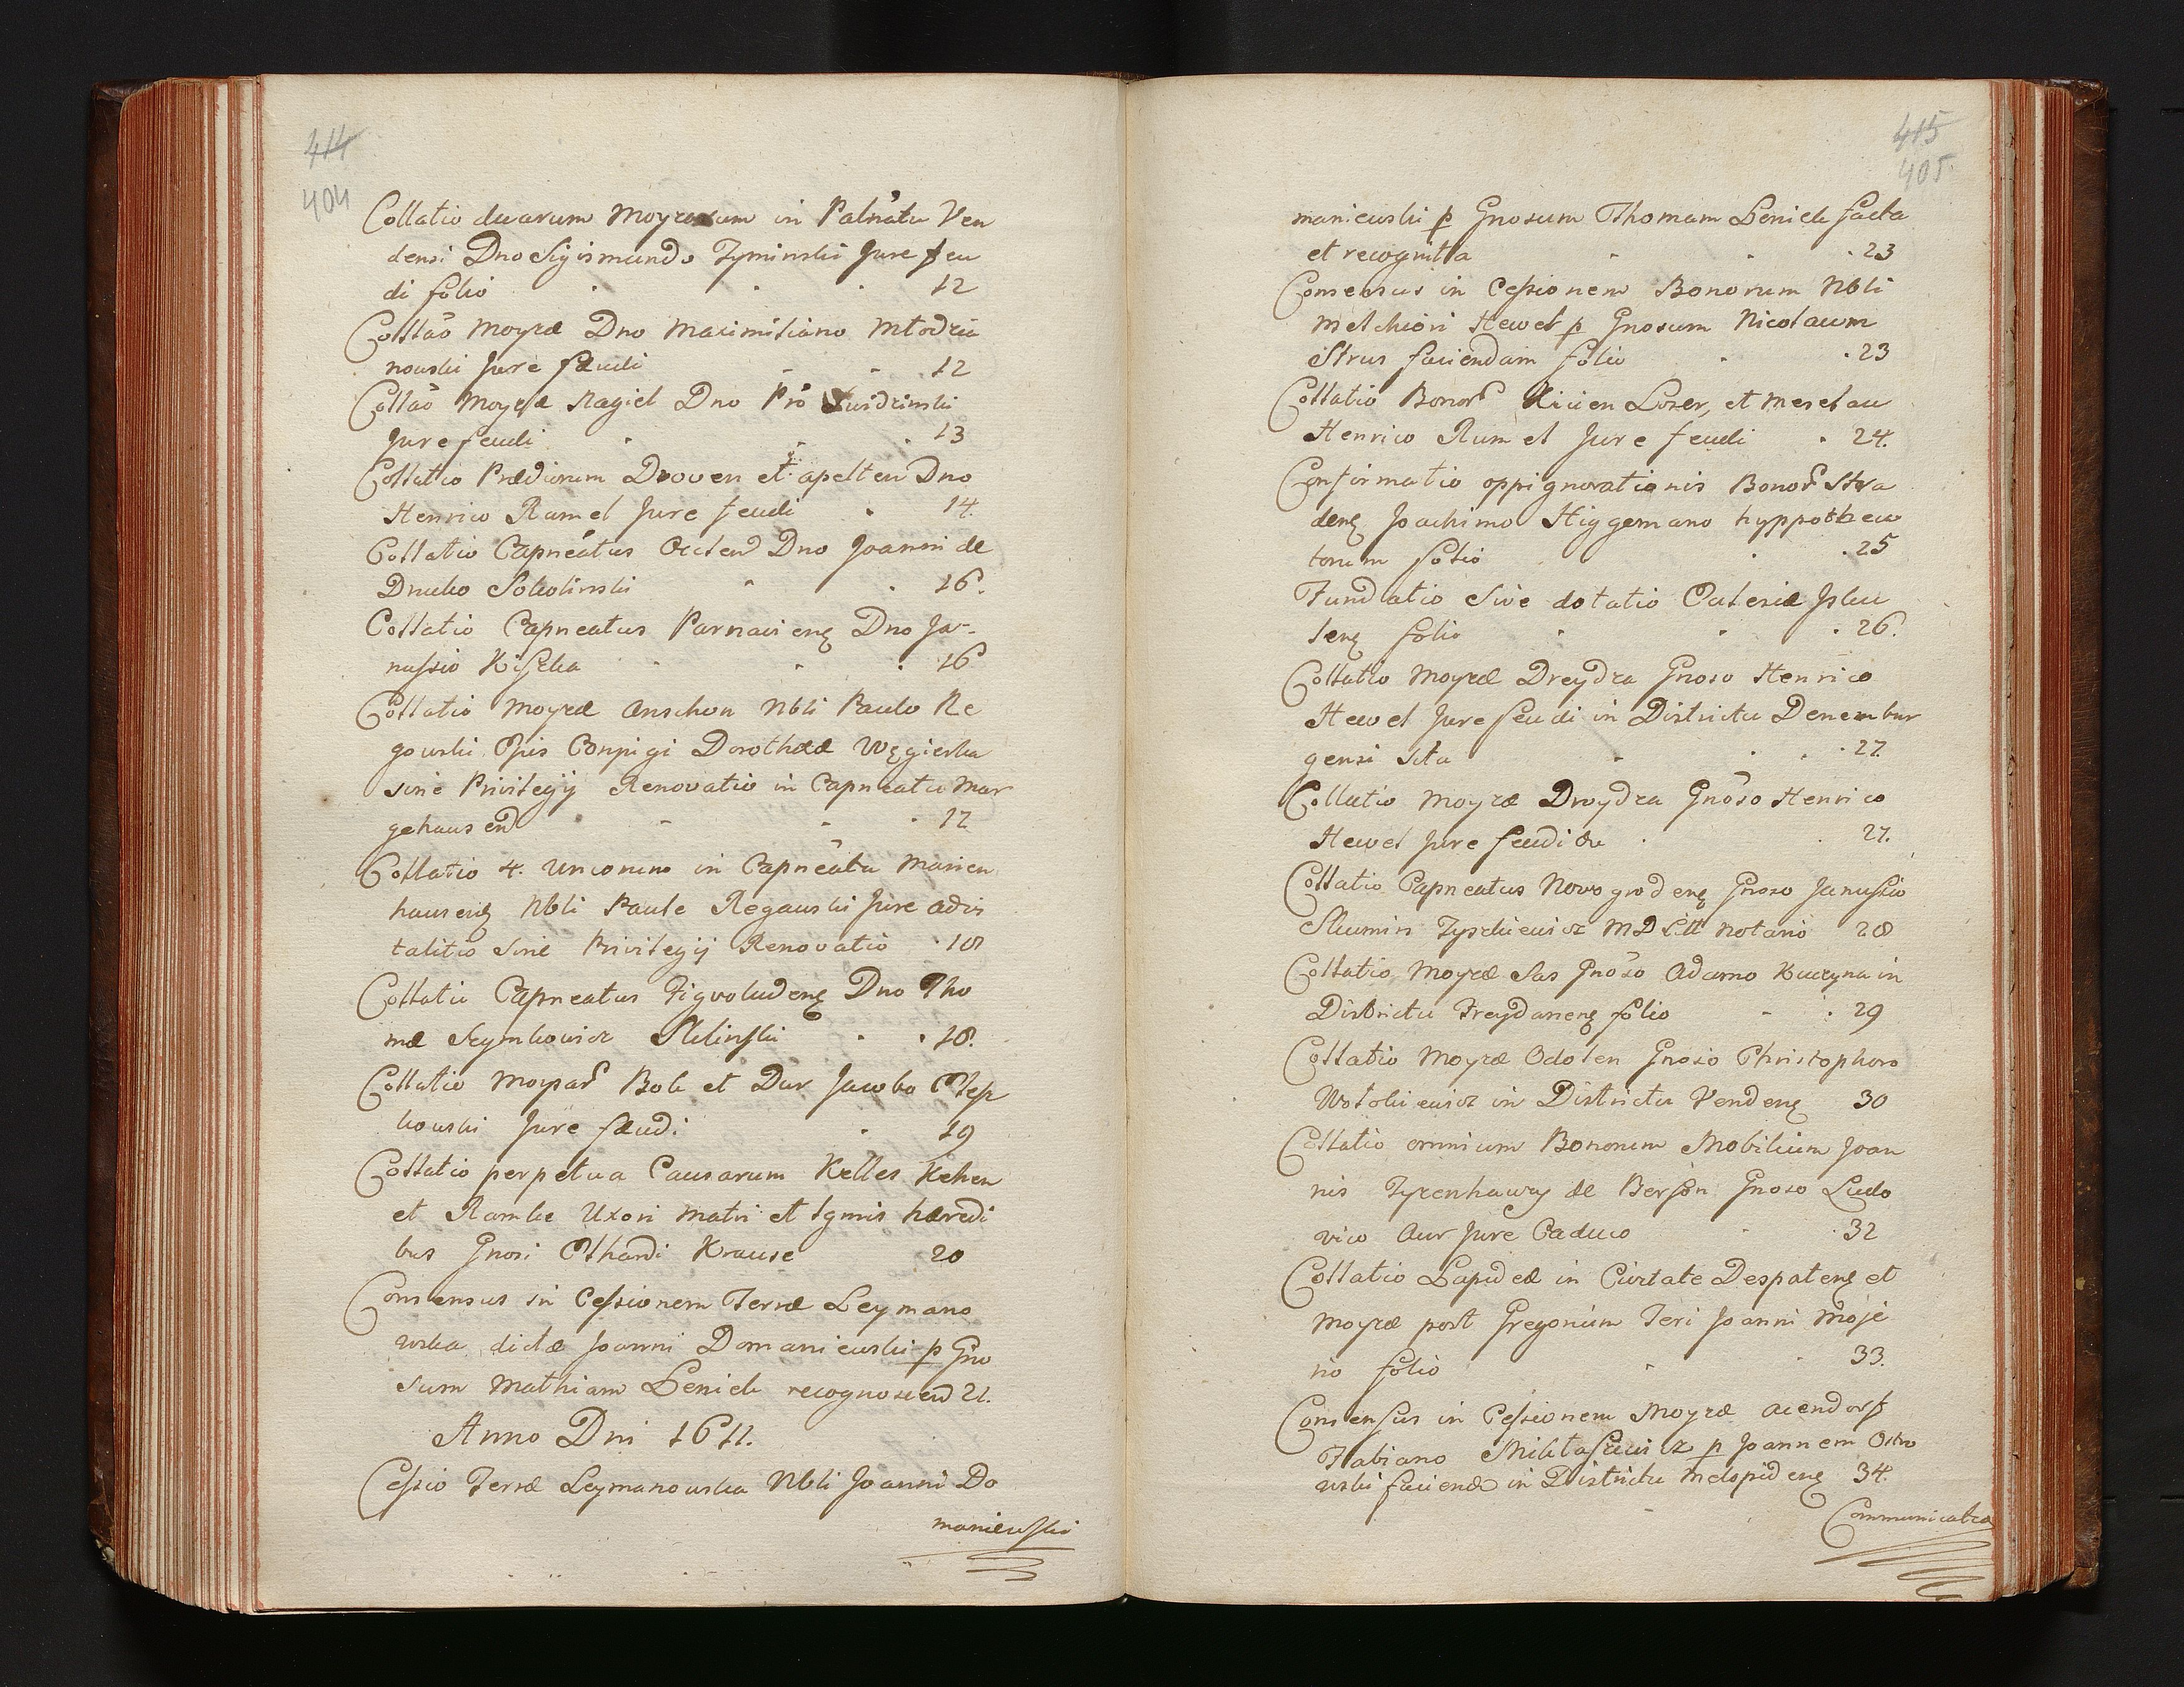 414
404
Collatio duarum Moyzarum in Palnatu Ven
densi Dno Sigismundo Zyminski Jure feu
di folio 12
Collāo Moyzæ Dno Maximiliano Młodzia
nowski Jure fæudi 12
Collāo Moyzæ Nagiel Dno
Jure feudi 13
Collatio Prædiorum Droven et apelten Dno
Henrico Ramel Jure feudi 14.
Collatio Capneatus Dno Joanni de
Drucko Sokolinski 16.
Collatio Capneatus Parnavienę Dno Ja-
nussio Kiszka 16
Collatio Moyzæ Anschon Nbli Paulo Re
gowski Dorotheæ Węgierka
sive Privilegij Renovatio in Capneatu Mar
gehausend 17
Collatio 4. Unconum in Capneatu Marien
hausenę Nbli Paule Regauski Jure advi
talitio sive Privilegij Renovatio 18
Collatio Capneatus Zigvoludenę Dno Tho
mæ Szymkowicz Sklinski 18.
Collatio Moyzar Bole et Dur Jacobo
kowski Jure fæudi 19
Collatio perpetua Causarum Kelles Kehen
et Ramke Uxori Matri et Lgmis hæredi
bus Gnosi Othardi Krause 20
Consensus in Cessionem Terræ Leymano
wska dictæ Joanni Domaniewski p Gno
sum Mathiam Leniek recognoscend 21.
Anno Dni 1611.
Cessio Terræ Leymanowska Nbli Joanni Do
maniewski
415
405.
maniewski p Gnosum Thomam Leniek facta
et recognita 23
Consensus in Cessionem Bonorum Nbli
Melchiori Hewel p Gnosum Nicolaum
Strus faciendam folio 23
Collatio Bonor Loser, et Meselau
Henrico Rumel Jure feudi 24.
Confirmatio oppignorationis Bonor Stra
denę Joachimo Higgemano hyppotheca
torum folio 25
Fundatio sive dotatio
senę folio 26.
Collatio Moyzæ Dreydza Gnoso Henrico
Hewel Jure feudi in Districtu Denembur
gensi sita 27.
Collatio Moyzæ Droydza Gnoso Henrico
Hewel Jure feudi 27.
Collatio Capneatus Novogrodenę Gnoso Janussio
Skumin Tyszkiewicz MD Litt Notario 28
Collatio Moyzæ Sas Gnoso Adamo Kuczyna in
Districtu Treydanenę folio 29
Collatio Moyzæ Odolen Gnoso Christophoro
Wolokiewicz in Districtu Vendenę 30
Collatio omnium Bonorum Mobilium Joan
nis Tyzenhawzy de Berson Gnoso Ludo
vico Aur Jure Caduco 32
Collatio Lapideæ in Civitate Despatenę et
Moyzæ post Gregorium Teri Joanni Moje
no folio 33.
Consensus in Cessionem Moyzæ aiendorf
Fabiano p Joannem Ostro
wski faciend in Districtu Melspidenę 34.
Communicatio